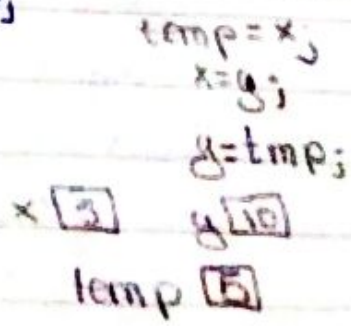 temp = x;
x=y;
y=tmp;
x 5 y 10
temp 5